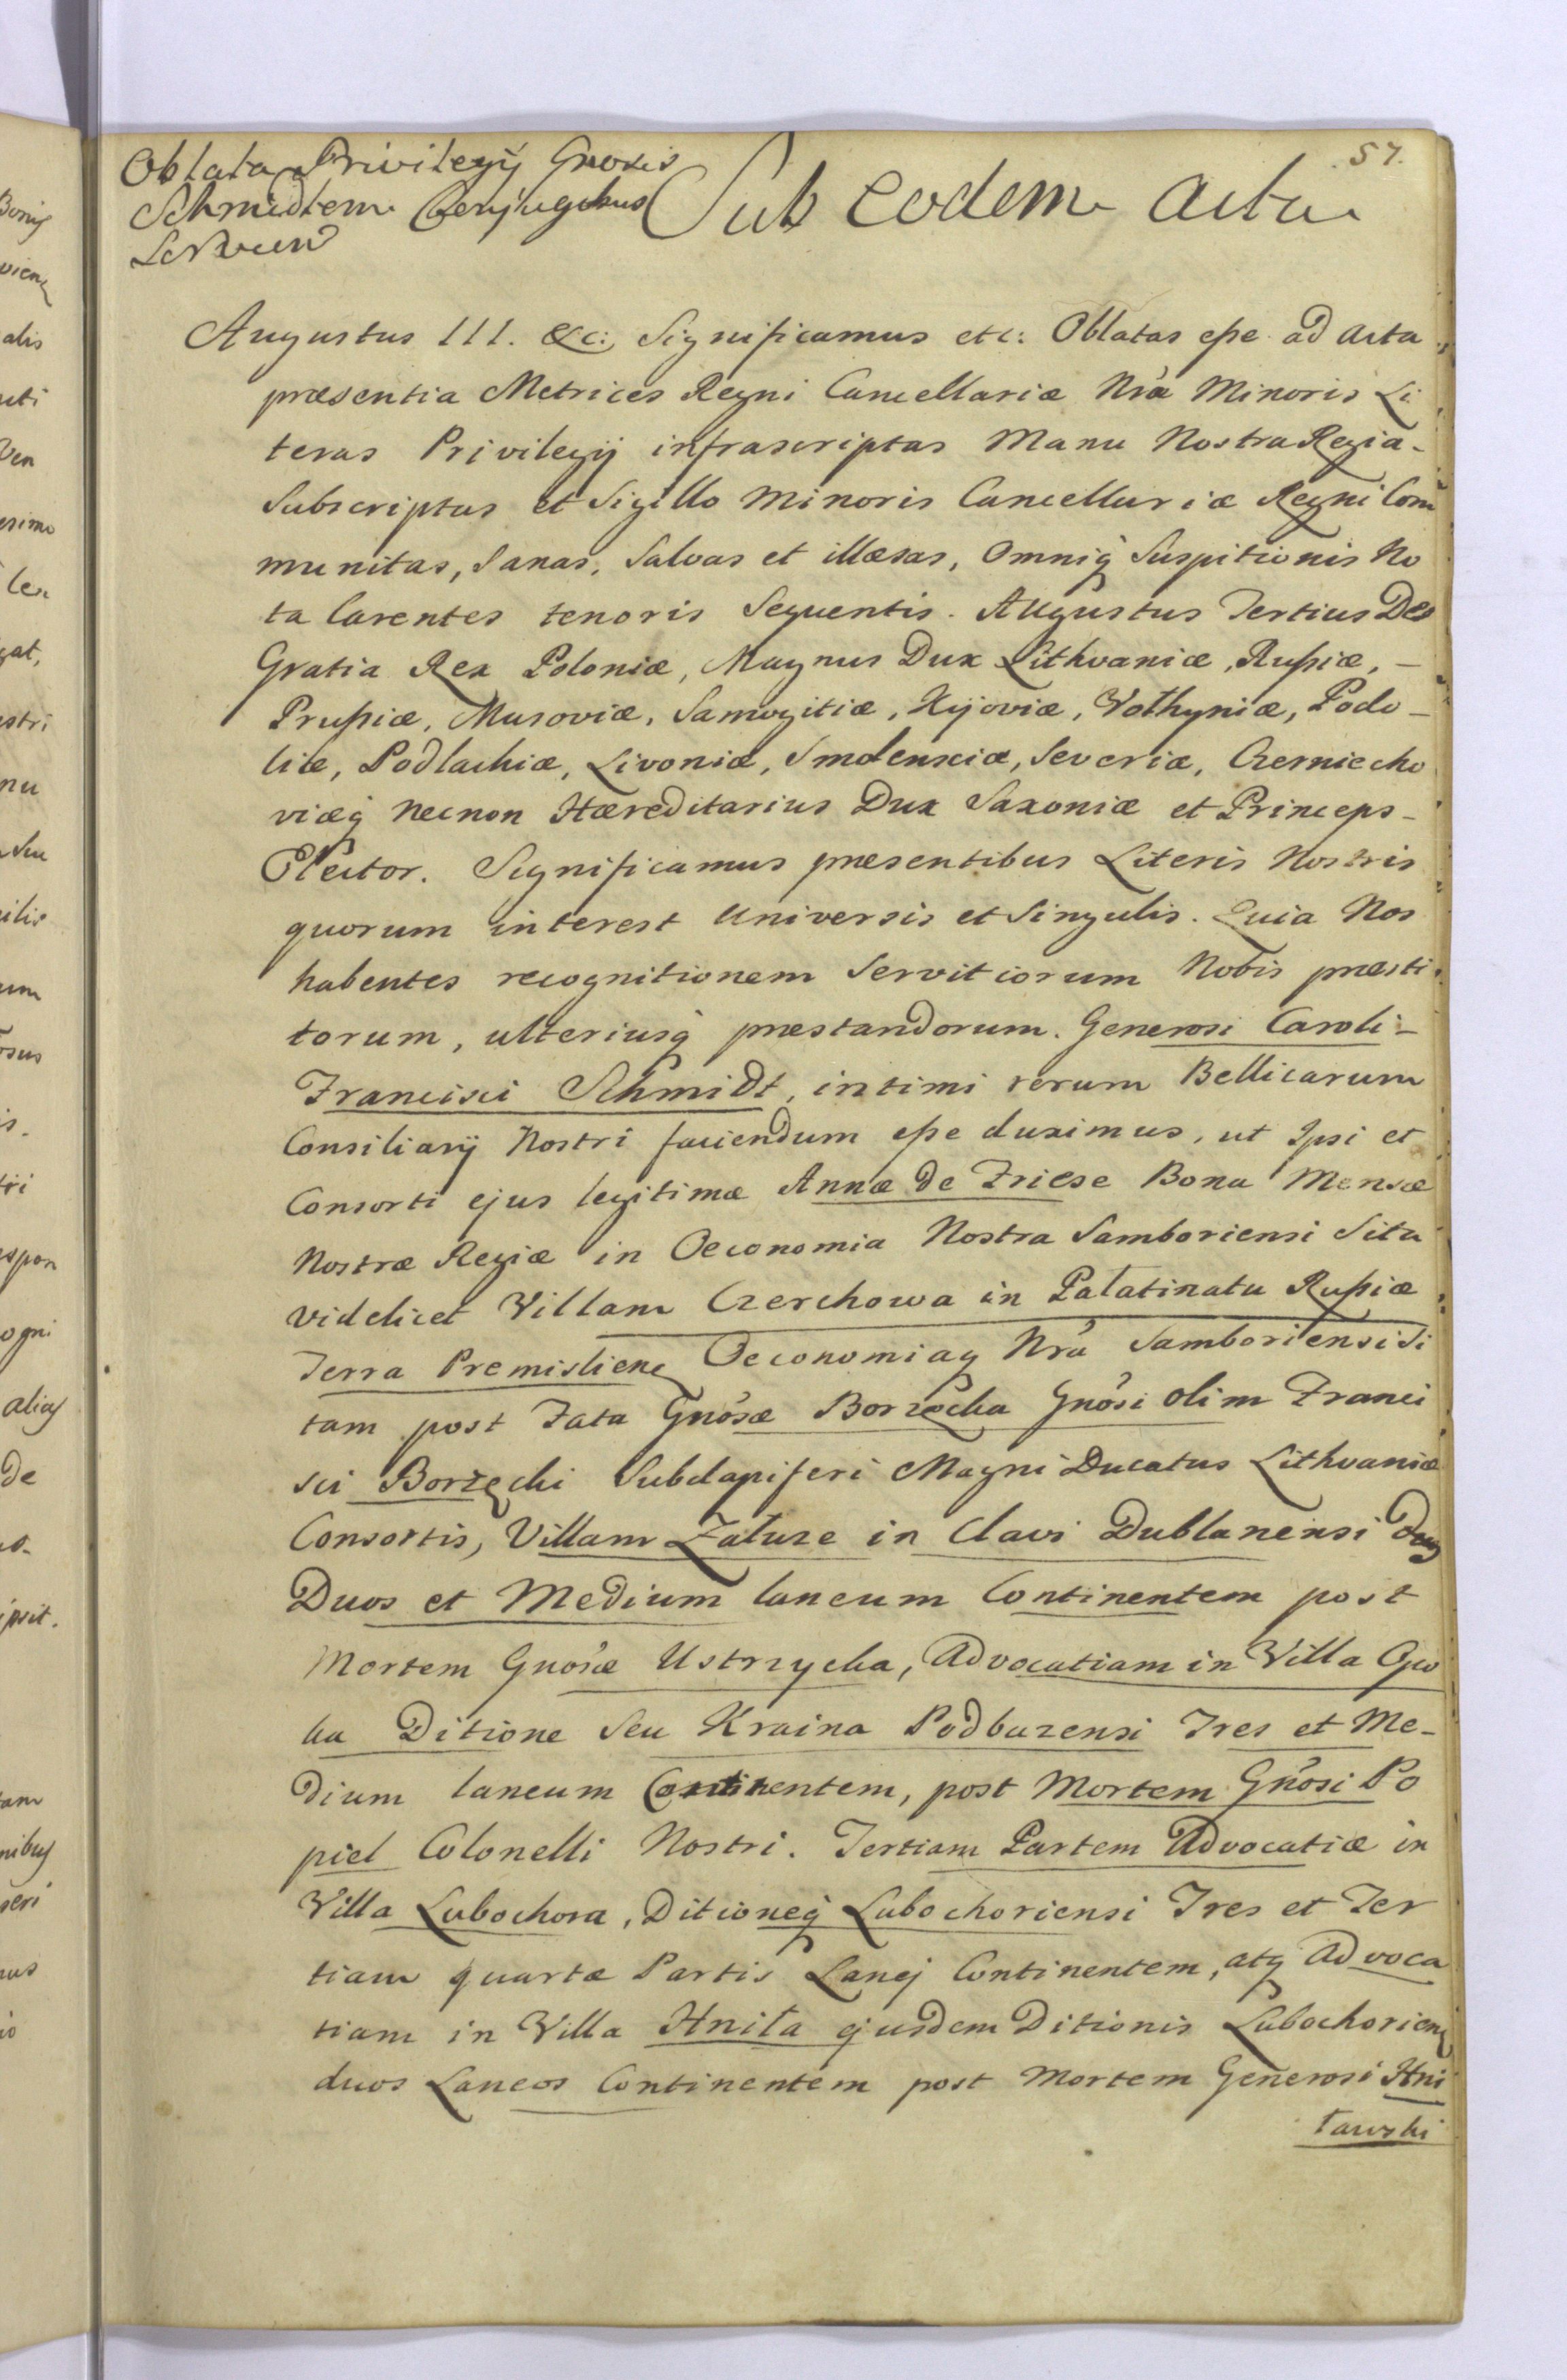 57.
Oblata Privilegÿ Gnosis
Schmidtem Conjugibus
Sub eodem actu
Augustus III. &c: Significamus etc: Oblatas eſse ad acta
præsentia Metrices Regni Cancellariæ Nra Minoris Li
teras Privilegÿ infrascriptas Manu Nostra Regia -
Subscriptas et Sigillo Minoris Cancellariæ Regni Com
munitas, Sanas, Salvas et illæsas, Omniq Suspitionis No
ta Carentes tenoris Sequentis. Augustus Tertius Dei
Gratia Rex Poloniæ, Magnus Dux Lithvaniæ, Ruſsiæ, -
Pruſsiæ, Masoviæ, Samogitiæ, Kijoviæ, Volhyniæ, Podo -
liæ, Podlachiæ, Livoniæ, Smolensciæ, Severiæ, Czerniecho
viæq necnon Hæreditarius Dux Saxoniæ et Princeps -
Elector. Significamus præsentibus Literis Nostris
quorum interest Universis et Singulis. Quia Nos
habentes recognitionem Servitiorum Nobis præsti
torum, ulteriusq præstandorum. Generosi Caroli -
Francisci Schmidt, intimi rerum Bellicarum
Consiliarÿ Nostri faciendum eſse duximus, ut Ipsi et
Consorti ejus legitimæ Annæ de Friese Bona Mensæ
Nostræ Regiæ in Oeconomia Nostra Samboriensi Sita
videlicet Villam Czerchowa in Palatinatu Ruſsiæ
Terra Premislien Oeconomiaq Nra Samboriensi Si
tam post Fata Gnosæ Borzęcka Gnosi olim Franci
sci Borzęcki Subdapiferi Magni Ducatus Lithvaniæ
Consortis, Villam Załuze in Clavi Dublanensi
Duos et Medium laneum Continentem post
Mortem Gnosæ Ustrzycka, Advocatiam in Villa Opo
ka Ditione Seu Kraina Podbuzensi Tres et Me-
dium laneum Continentem, post Mortem Gnosi Po
piel Colonelli Nostri. Tertiam Partem Advocatiæ in
Villa Lubochora, Ditioneq Lubochoriensi Tres et Ter
tiam quartæ Partis Lanej Continentem, atq Advoca
tiam in Villa Hniła ejusdem Ditionis Lubochorien
duos Laneos Continentem post Mortem Generosi Hni
ławski